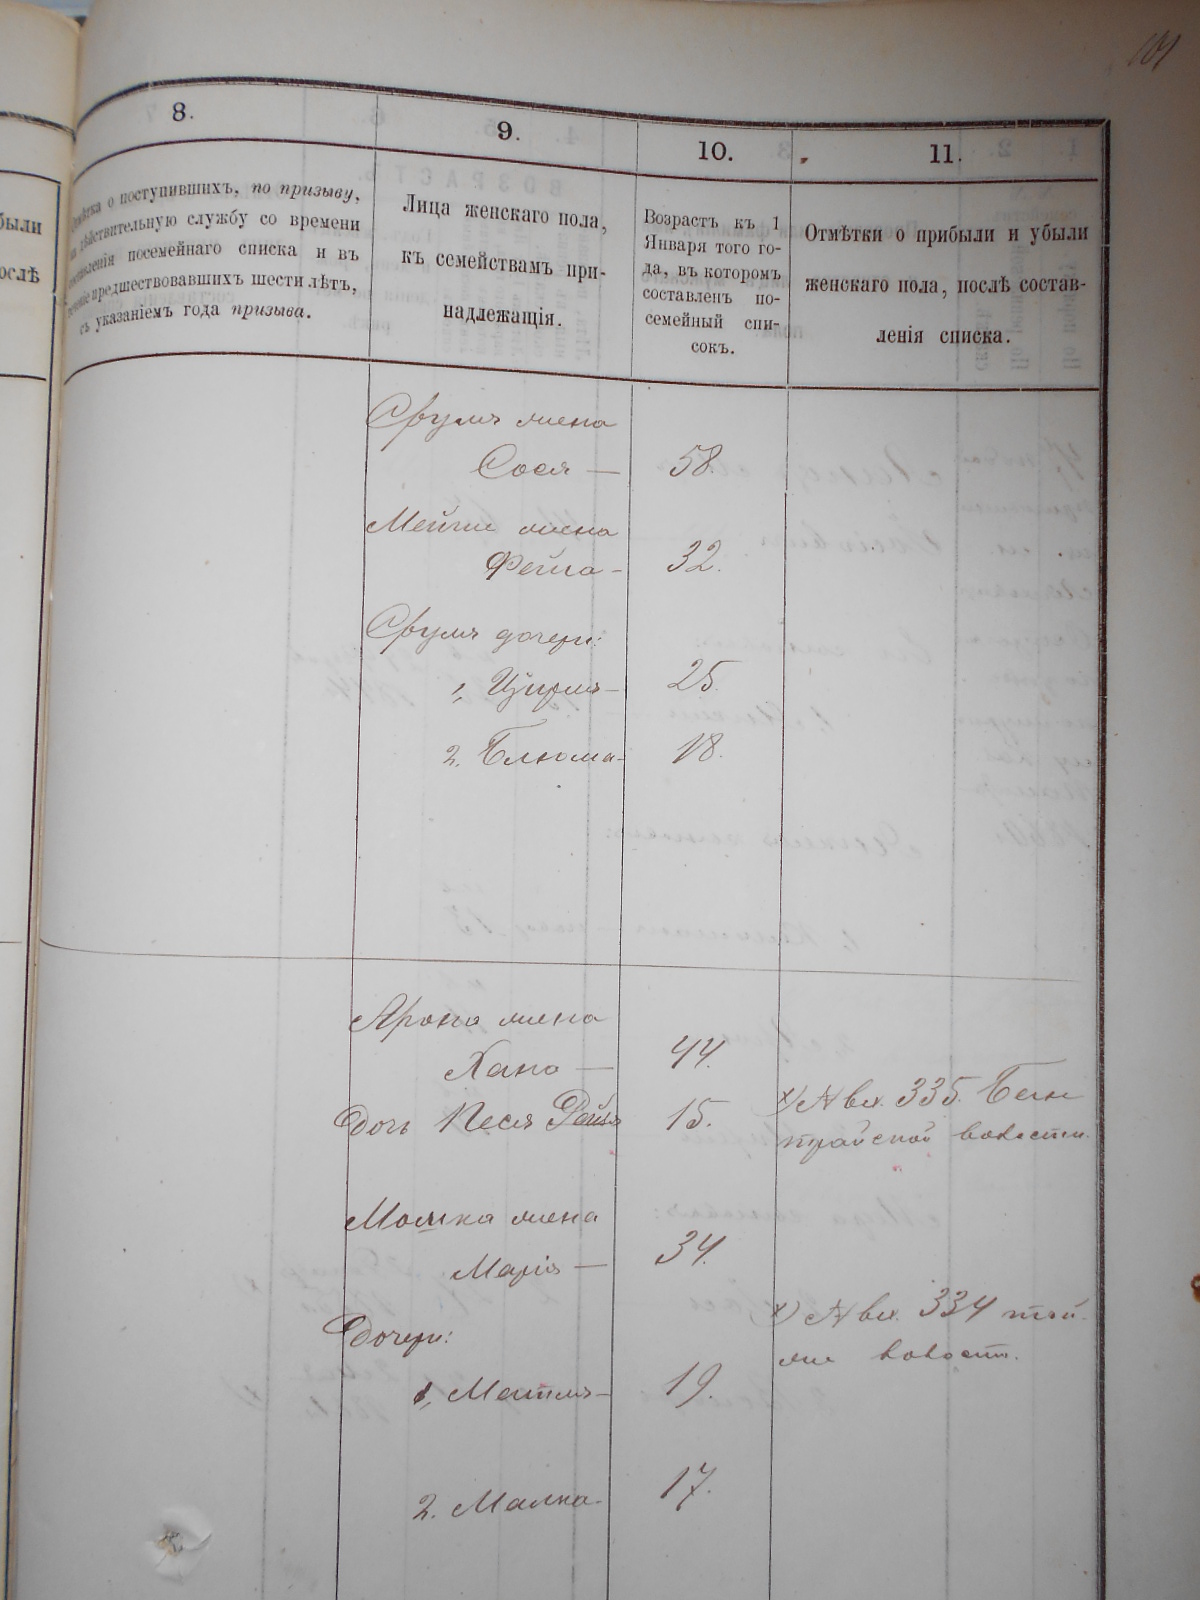 101
8.
9.
10.
11.
были
ослѣ
о поступившихъ, по призыву,
дѣйствительную службу со времени
составленія посемейнаго списка и въ
теченіе предшествовавшихъ шести лѣтъ,
съ указаніемъ года призыва.
Лица женскаго пола,
къ семействамъ при-
надлежащія.
Возрастъ къ 1
Января того го-
да, въ которомъ
составленъ по-
семейный спи-
сокъ.
Отмѣтки о прибыли и убыли
женскаго пола, послѣ состав-
ленія списка.
Сруля жена
Сося — 58.
жена
Фейга - 32.
Сруля дочери:
1, Цирля - 25.
2. Блюма - 18.
Арона жена
Хана — 44.
Дочь Песя Рейзя 15.
х) 335.
волости.
Мошка жена
Марія — 34.
Дочери:
х) 334 той
же волост.
1, Матля - 19.
2. Малка - 17.